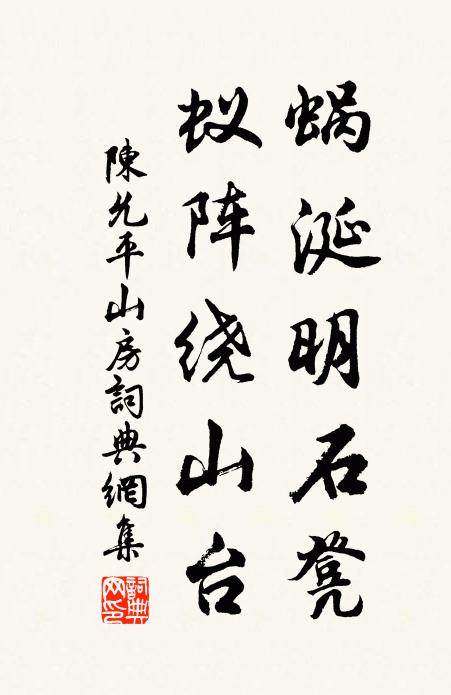 蜗涎明石凳
蚁阵绕山台
陳允平山房詞典網集
詞典网印